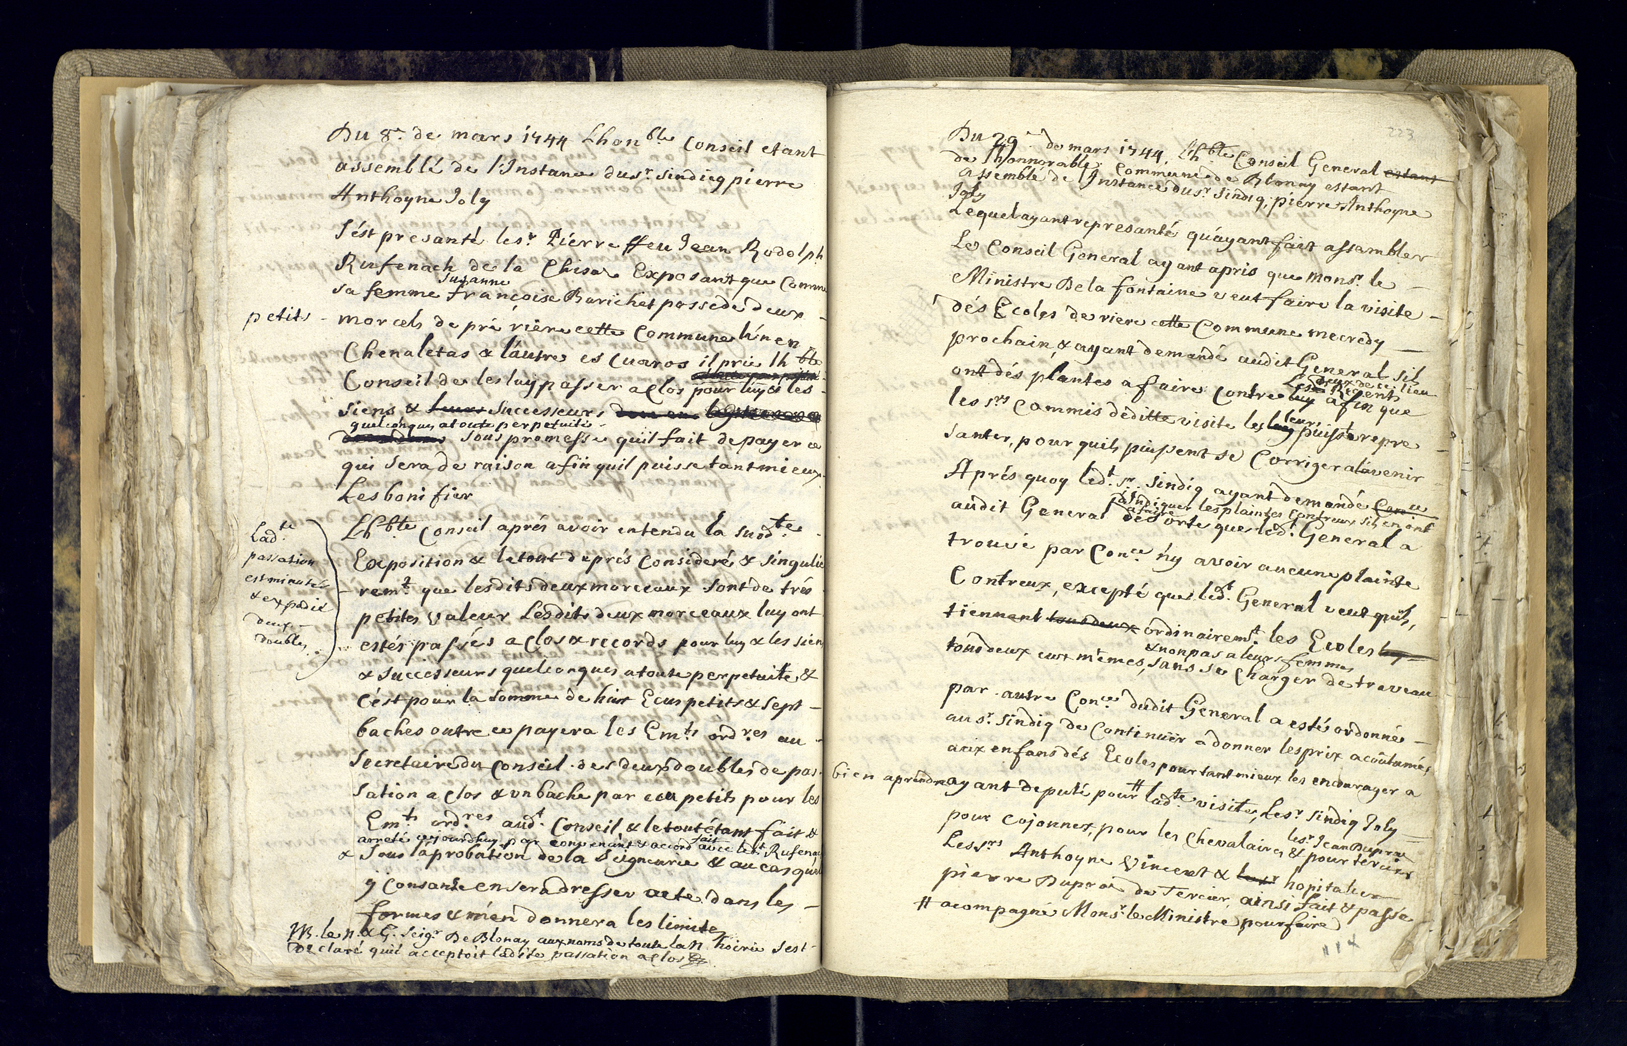 Du 8e. de mars 1744 Lhonble Conseil etant
assemblé de l'Instance du sr. sindicq pierre
Anthoyne Joly
S'ést presanté le sr. Pierre ffeu Jean Rodolph
Rufenach de la Chisaz Exposant que Comme
Susanne
sa femme françoise Burichet possede deux
petits
morcels de pré riére cette Commune lún en
Chenaletas & láutre es Cuaros il prie lh ble
Conseil de les luy passer a Clos pour luy & les
siens & leurs successeurs
quelconques a toute perpetuité
sous promesse qu'il fait de payer ce
qui sera de raison afin quil puisse tant mieux
Les boni fier
Lh.ble Conseil aprés avoir entendu la susd.te
Exposition & le tout d'aprés Consideré & singulie
remt. que lesdits deux morceaux sont de trés
petites valeur Lesdits deux morceaux luy ont
estés passés a clos & records pour luy & les sien
& successeurs quelconques a toute perpetuité &
C'ést pour la somme de huit Ecus petits & sept
baches outre ce payera les Emts ordres au
Secretaire du Conseil des deux doubles de pas
sation a clos & un bache par ecu petit pour les
Emts ordres audt. Conseil & le tout étant fait &
arrete aujourdhuy par convenant & accord fait avec ledt Rufenach
& sous l'aprobation de la Seigneurie & au cas que
y Consante en sera dresser acte dans les
formes & m'en donnera les limites
Mr. le n. & G. Seigr De Blonay aux noms de toute la n. hoirie s'est
declaré quil acceptoit ladite passation a clos
Ladte
passation
est minutée
& expedié
deux
doubles
223
Du 29e. de mars 1744. Lh.ble Conseil General estant
de lhonnorable Commune de Blonay estant
assemblé de l'Instance du sr. sindiq, pierre Anthoyne
Joly
Lequel ayant representé qu'ayant fait assembler
Le Conseil General ayant apris que monsr. le
Ministre De la fontaine veut faire la visite
dés Ecoles de riere cette Commune mecredy
prochain, & ayant demandé audit General sil
ont dés plantes a faire Contre luy afin que
Les deux Regents de ce lieu
les srs Commis de ditte visite les leur puisse repre
santer, pour quils puissent se Corriger a l'avenir
Aprés quoy ledt. sr. sindiq ayant demandé Con.ce
audit General d'indiquer les plaintes contreux sils en ont
a faire
dés orte que ledt. General a
trouvé par Con.ce n'y avoir aucune plainte
Contreux, excepté que ledt. General veut qu'ils
tiennent tous deux ordinairemt. les Ecoles
& non pas a leurs femmes
tous deux eux mémes, sans se Charger de traveau
par autre Con.ce dudit General a estés ordonné
au sr. sindiq de Continuer a donner lésprix acoûtumés
aux enfans dés Ecoles pour tant mieux les encourager a
bien aprendre
ayant deputé, pour # ladte visite, Le sr. sindiq Joly
pour cojonnex, pour les Chevalaires le sr. Jean Dupraz & pour tercier
Les srs Anthoyne Vincent & hopitalier
pierre Dupraz de Tercier, ainsi fait & passé
# acompagné Monsr. le Ministre pour faire